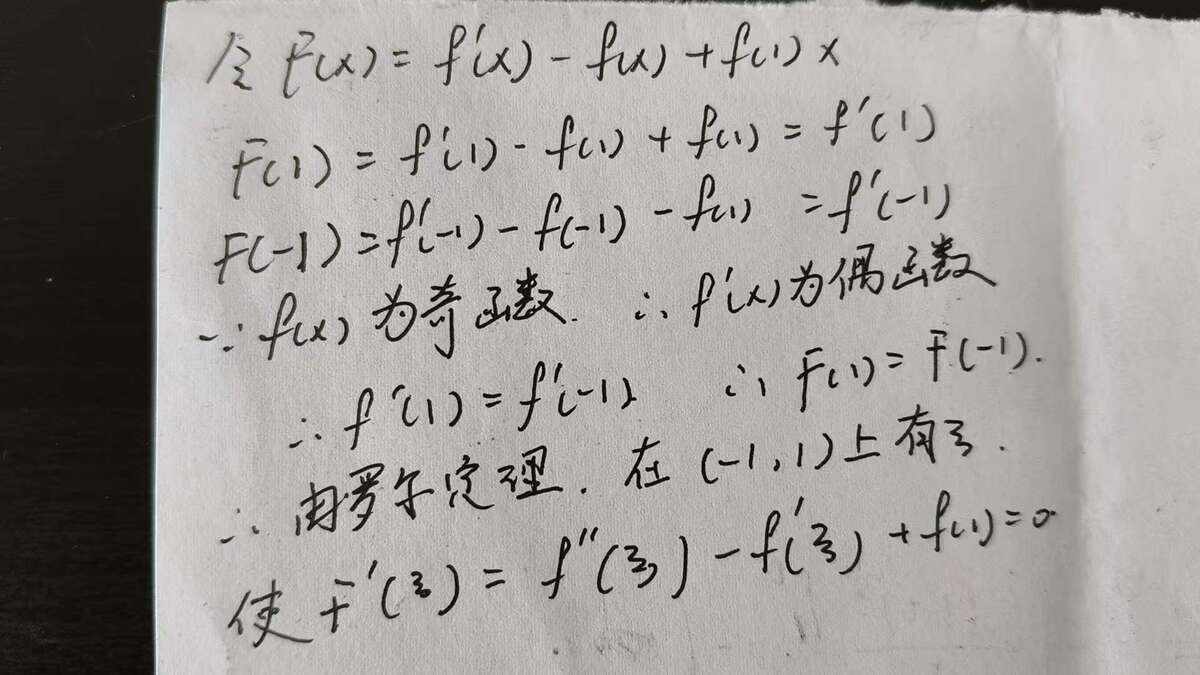 令 F(x) = f'(x) - f(x) + f(1) x
F(1) = f'(1) - f(1) + f(1) = f'(1)
F(-1) = f'(-1) - f(-1) - f(1) = f'(-1)
∵ f(x) 为奇函数. ∴ f'(x) 为偶函数
∴ f'(1) = f'(-1) ∴ F(1) = F(-1).
∴ 由罗尔定理. 在 (-1,1) 上有 ξ.
使 F'(ξ) = f''(ξ) - f'(ξ) + f(1) = 0